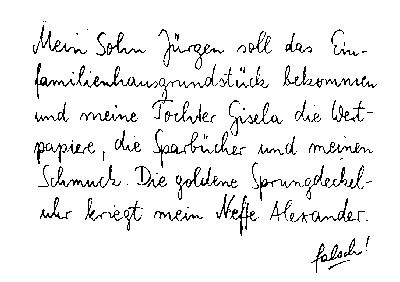 Mein Sohn Jürgen soll das Ein-
familienhausgrundstück bekommen
und meine Tochter Gisela die Wert-
papiere, die Sparbücher und meinen
Schmuck. Die goldene Sprungdeckel-
uhr kriegt mein Neffe Alexander.
falsch!